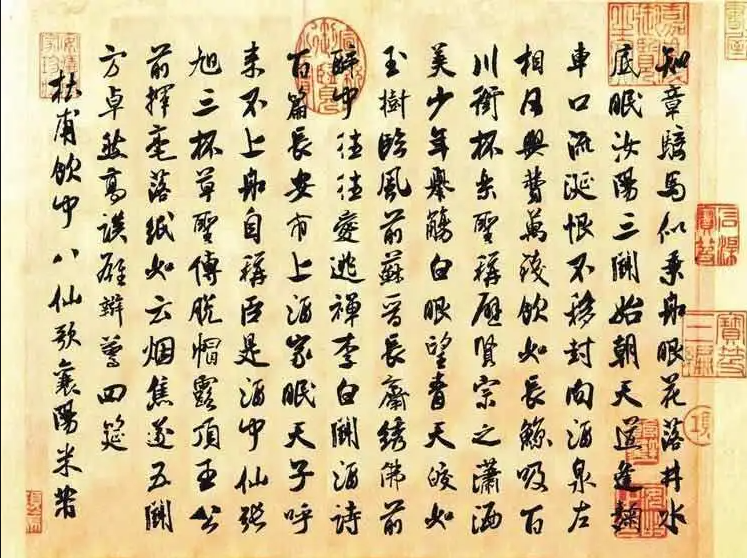 知章騎馬似乘船眼花落井水
底眠汝陽三鬭始朝天道逢麴
車口流涎恨不移封向酒泉左
相日興費萬錢飲如長鯨吸百
川銜杯樂聖稱避賢宗之瀟洒
美少年舉觴白眼望青天皎如
玉樹臨風前蘇晉長齋繡佛前
醉中往往愛逃禪李白鬭酒詩
百篇長安市上酒家眠天子呼
来不上船自稱臣是酒中仙張
旭三杯草聖傳脱帽露頂王公
前揮毫落紙如云烟焦遂五鬭
方卓然高談雄辯驚四筵
杜甫飲中八仙歌襄陽米芾